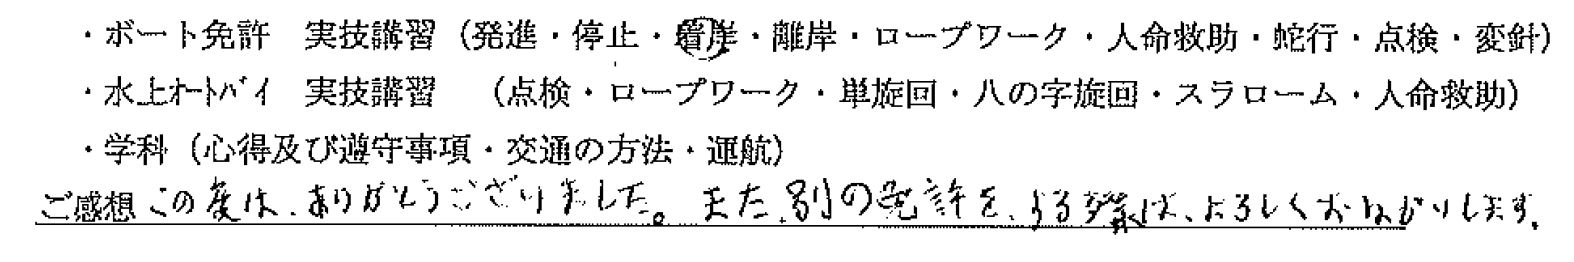 ・ボート免許　実技講習（発進・停止・着岸・離岸・ロープワーク・人命救助・蛇行・点検・変針）
・水上オートバイ　実技講習　（点検・ロープワーク・単旋回・八の字旋回・スラローム・人命救助）
・学科（心得及び遵守事項・交通の方法・運航）
ご感想 この度は、ありがとうございました。また、別の免許を、とる際は、よろしくおねがいします。